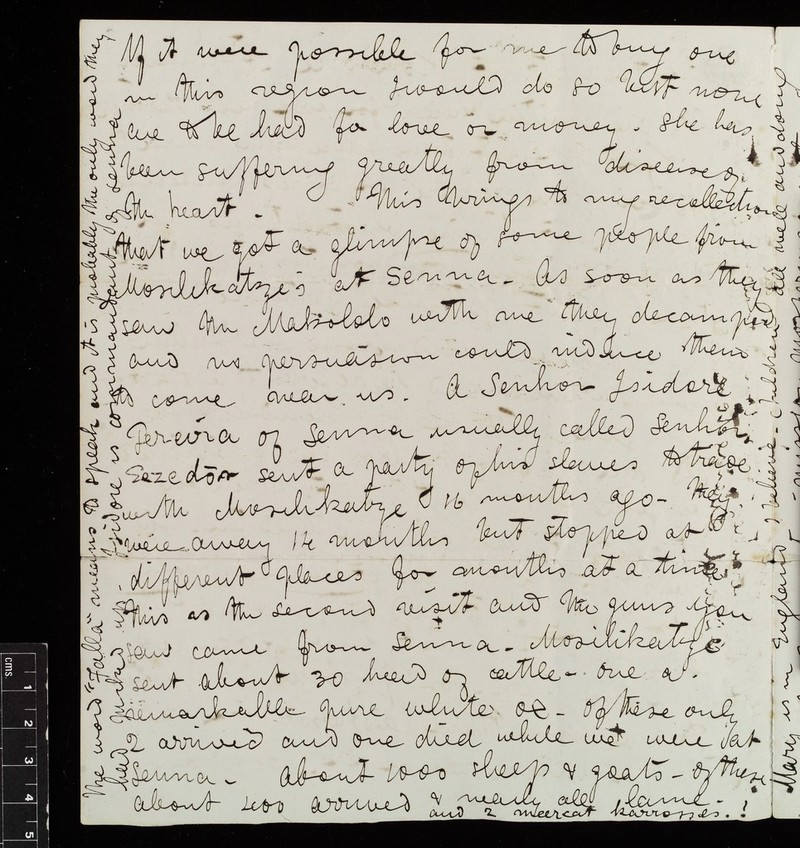 If it were possible for me to buy one
in this region I would do so but none
are to be had for love or money. She has
been suffering greatly from disease of
the heart. This brings to my recollection
that we got a glimpse of some people from
Mosilikatze's at Senna. As soon as they
saw the Makololo with me they decamped
and no persuasion could induce them
to come near us. A Senhor Isidore
Pereira of Senna usually called Senhor
Sezedor sent a party of his slaves to trade
with Mosilikatze 16 months ago - They
were away 14 months but stopped at
different places for months at a time
this is the second visit and the guns you
saw came from Senna - Mosilikatze
sent about 30 head of cattle - one a
remarkable pure white ox - of these only
2 arrived and one died while we were at
Senna - about 1000 sheep & goats - of these
about 400 arrived & nearly all lame -
and 2 meercat karrosses. !
The word "Falla" means to speak and it is probably the only word they
had picked up. Isidore is commandant of Senna
Mary is in England I believe - Children all well and done
cms.
1
2
3
4
5